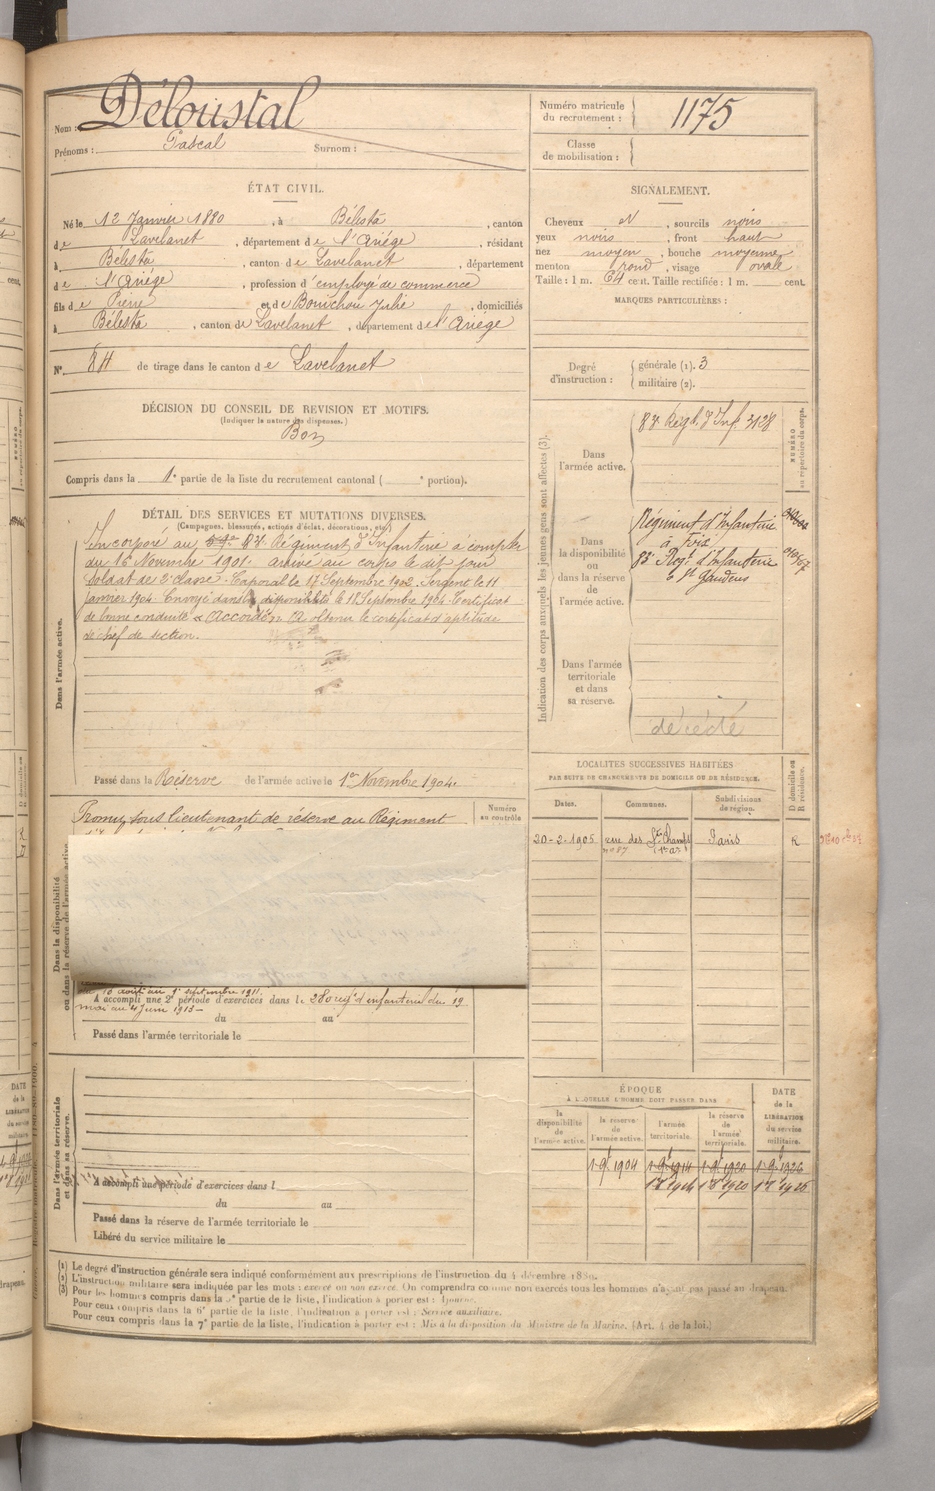 Nom : Déloustal
Prénoms : Pascal Surnom :
Numéro matricule du recrutement : 1175
Classe de mobilisation :
ÉTAT CIVIL.
Né le 12 Janvier 1880, à Bélesta, canton
de Lavelanet, département de l'Ariège, résidant
à Bélesta, canton de Lavelanet, département
de l'Ariège, profession d'employé de commerce
fils de Pierre et de Bouichou Julie, domiciliés
à Bélesta, canton de Lavelanet, département de l'Ariège
N° 84 de tirage dans le canton de Lavelanet
SIGNALEMENT.
Cheveux N, sourcils noirs
yeux noirs, front haut
nez moyen, bouche moyenne
menton rond, visage ovale
Taille : 1 m. 64 cent. Taille rectifiée : 1 m. cent.
MARQUES PARTICULIÈRES :
Degré d'instruction : générale (1). 3
militaire (2).
DÉCISION DU CONSEIL DE REVISION ET MOTIFS.
(Indiquer la nature des dispenses.)
Bon
Compris dans la 1e partie de la liste du recrutement cantonal ( e portion).
DÉTAIL DES SERVICES ET MUTATIONS DIVERSES.
(Campagnes, blessures, actions d'éclat, décorations, etc.)
Dans l'armée active.
Incorporé au 59e 83e Régiment d'Infanterie à compter
du 16 Novembre 1901. arrivé au corps le dit jour
soldat de 2e classe. Caporal le 17 Septembre 1902. Sergent le 11
Janvier 1904. Envoyé dans la disponibilité le 18 Septembre 1904. Certificat
de bonne conduite « Accordé ». A obtenu le certificat d'aptitude
de chef de section.
Passé dans la Réserve de l'armée active le 1er Novembre 1904.
Indication des corps auxquels les jeunes gens sont affectés (3).
NUMÉRO au répertoire du corps.
Dans l'armée active.
83e Régt. d'Inf. 2128
Dans la disponibilité ou dans la réserve de l'armée active.
Régiment d'Infanterie
à Foix
83e Régt d'Infanterie
à St Gaudens
Dans l'armée territoriale et dans sa réserve.
décédé
LOCALITÉS SUCCESSIVES HABITÉES
PAR SUITE DE CHANGEMENTS DE DOMICILE OU DE RÉSIDENCE.
Dates. Communes. Subdivisions de région. D domicile ou R résidence.
20-2-1905 rue des Pts Champs Paris R
n° 87 (1er ar.)
Dans la disponibilité ou dans la réserve de l'armée active.
Promu sous lieutenant de réserve au Régiment
Numéro au contrôle
du 16 août au 1er septembre 1911.
A accompli une 2e période d'exercices dans le 280e régt d'infanterie du 19
mai au 4 juin 1913 —
du au
Passé dans l'armée territoriale le
Dans l'armée territoriale et dans sa réserve.
A accompli une période d'exercices dans l
du au
Passé dans la réserve de l'armée territoriale le
Libéré du service militaire le
ÉPOQUE
À LAQUELLE L'HOMME DOIT PASSER DANS
la disponibilité de l'armée active. la réserve de l'armée active. l'armée territoriale. la réserve de l'armée territoriale. DATE de la LIBÉRATION du service militaire.
1-9bre 1904 1-9bre 1914 1-9bre 1920 1-9bre 1926
(1) Le degré d'instruction générale sera indiqué conformément aux prescriptions de l'instruction du 4 décembre 1889.
(2) L'instruction militaire sera indiquée par les mots : exercé ou non exercé. On comprendra comme non exercés tous les hommes n'ayant pas passé au drapeau.
(3) Pour les hommes compris dans la 5e partie de la liste, l'indication à porter est : Ajourné.
Pour ceux compris dans la 6e partie de la liste, l'indication à porter est : Service auxiliaire.
Pour ceux compris dans la 7e partie de la liste, l'indication à porter est : Mis à la disposition du Ministre de la Marine. (Art. 4 de la loi.)